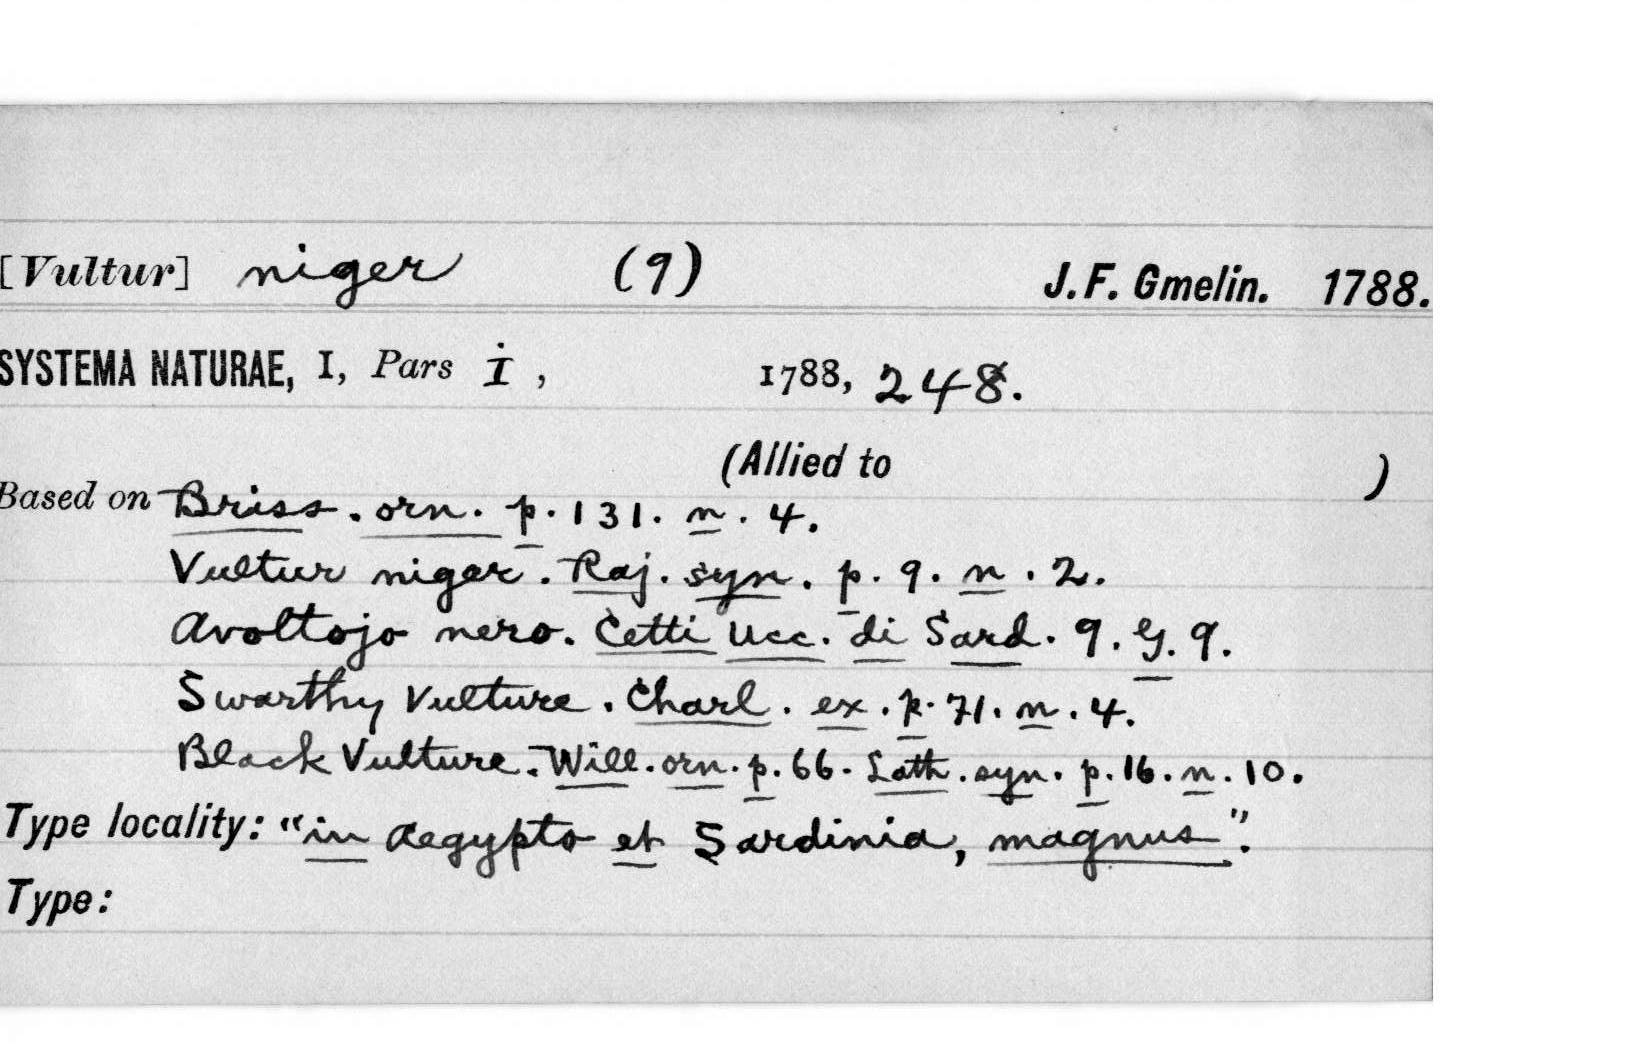 [Vultur] niger (9) J.F. Gmelin. 1788.
SYSTEMA NATURAE, I, Pars i, 1788, 248.
(Allied to )
Based on Briss. orn. p. 131. n. 4.
Vultur niger. Raj. syn. p. 9. n. 2.
Avoltojo nero. Cetti Ucc. di Sard. 9. G. 9.
Swarthy Vulture. Charl. ex. p. 71. n. 4.
Black Vulture. Will. orn. p. 66. Lath. syn. p. 16. n. 10.
Type locality: "in Aegypto et Sardinia, magnus".
Type: